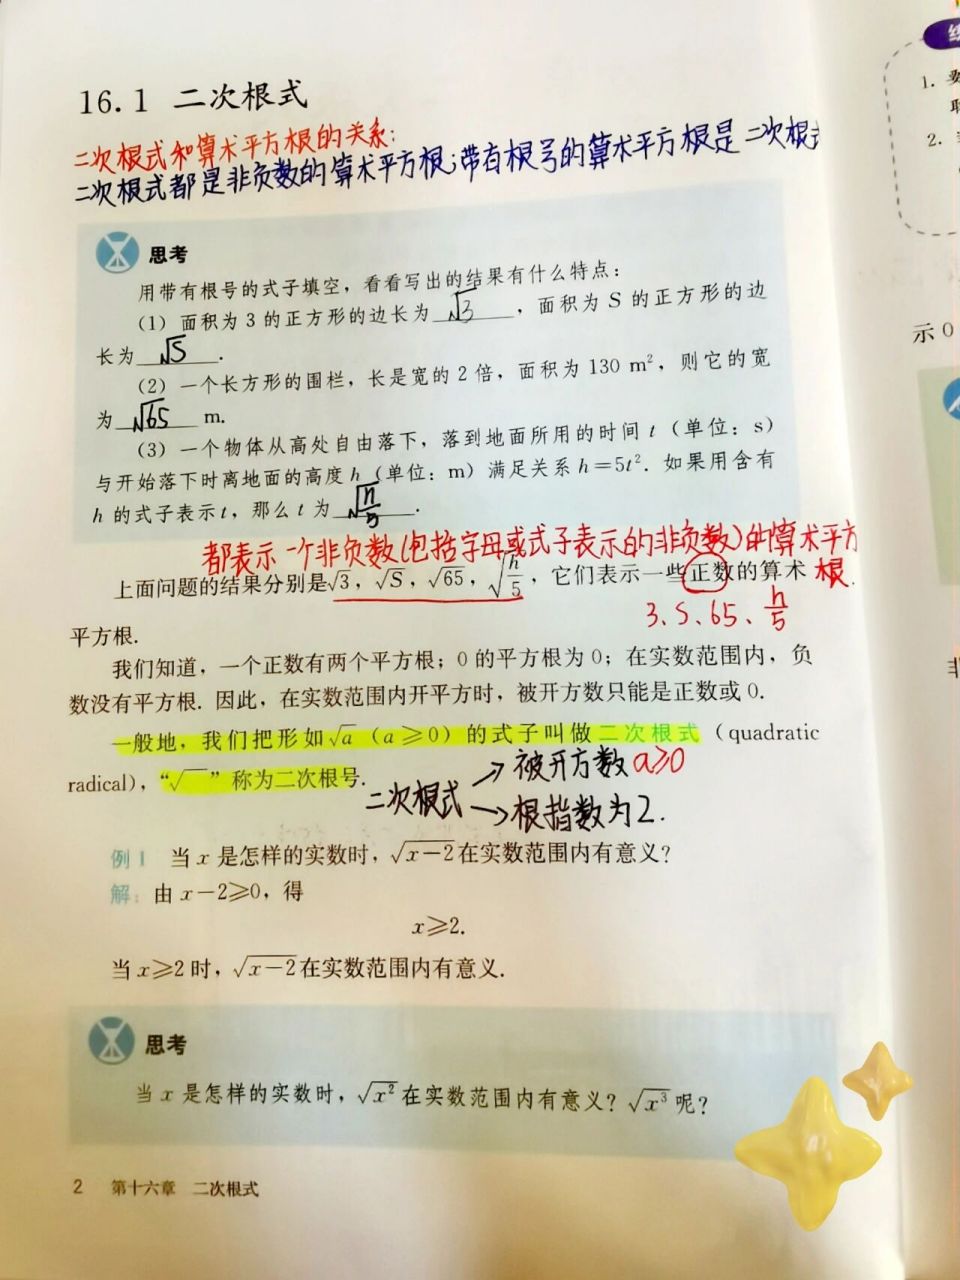 16.1 二次根式
二次根式和算术平方根的关系:
二次根式都是非负数的算术平方根;带有根号的算术平方根是二次根式
思考
用带有根号的式子填空，看看写出的结果有什么特点：
（1）面积为 3 的正方形的边长为 √3 ，面积为 S 的正方形的边
长为 √S .
（2）一个长方形的围栏，长是宽的 2 倍，面积为 130 m²，则它的宽
为 √65 m.
（3）一个物体从高处自由落下，落到地面所用的时间 t（单位：s）
与开始落下时离地面的高度 h（单位：m）满足关系 h=5t². 如果用含有
h 的式子表示 t，那么 t 为 √(h/5) .
都表示一个非负数(包括字母或式子表示的非负数)的算术平方
根.
上面问题的结果分别是√3，√S，√65，√(h/5)，它们表示一些正数的算术
3、S、65、h/5
平方根.
我们知道，一个正数有两个平方根；0 的平方根为 0；在实数范围内，负
数没有平方根. 因此，在实数范围内开平方时，被开方数只能是正数或 0.
一般地，我们把形如√a（a≥0）的式子叫做二次根式（quadratic
radical），“√ ”称为二次根号.
二次根式 → 被开方数 a≥0
→ 根指数为2.
例1 当 x 是怎样的实数时，√(x-2)在实数范围内有意义？
解：由 x-2≥0，得
x≥2.
当 x≥2 时，√(x-2)在实数范围内有意义.
思考
当 x 是怎样的实数时，√(x²)在实数范围内有意义？√(x³)呢？
2 第十六章 二次根式
1.
2.
示 0